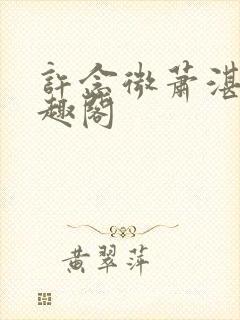 許念微蕭湛
趣閣
黃翠萍